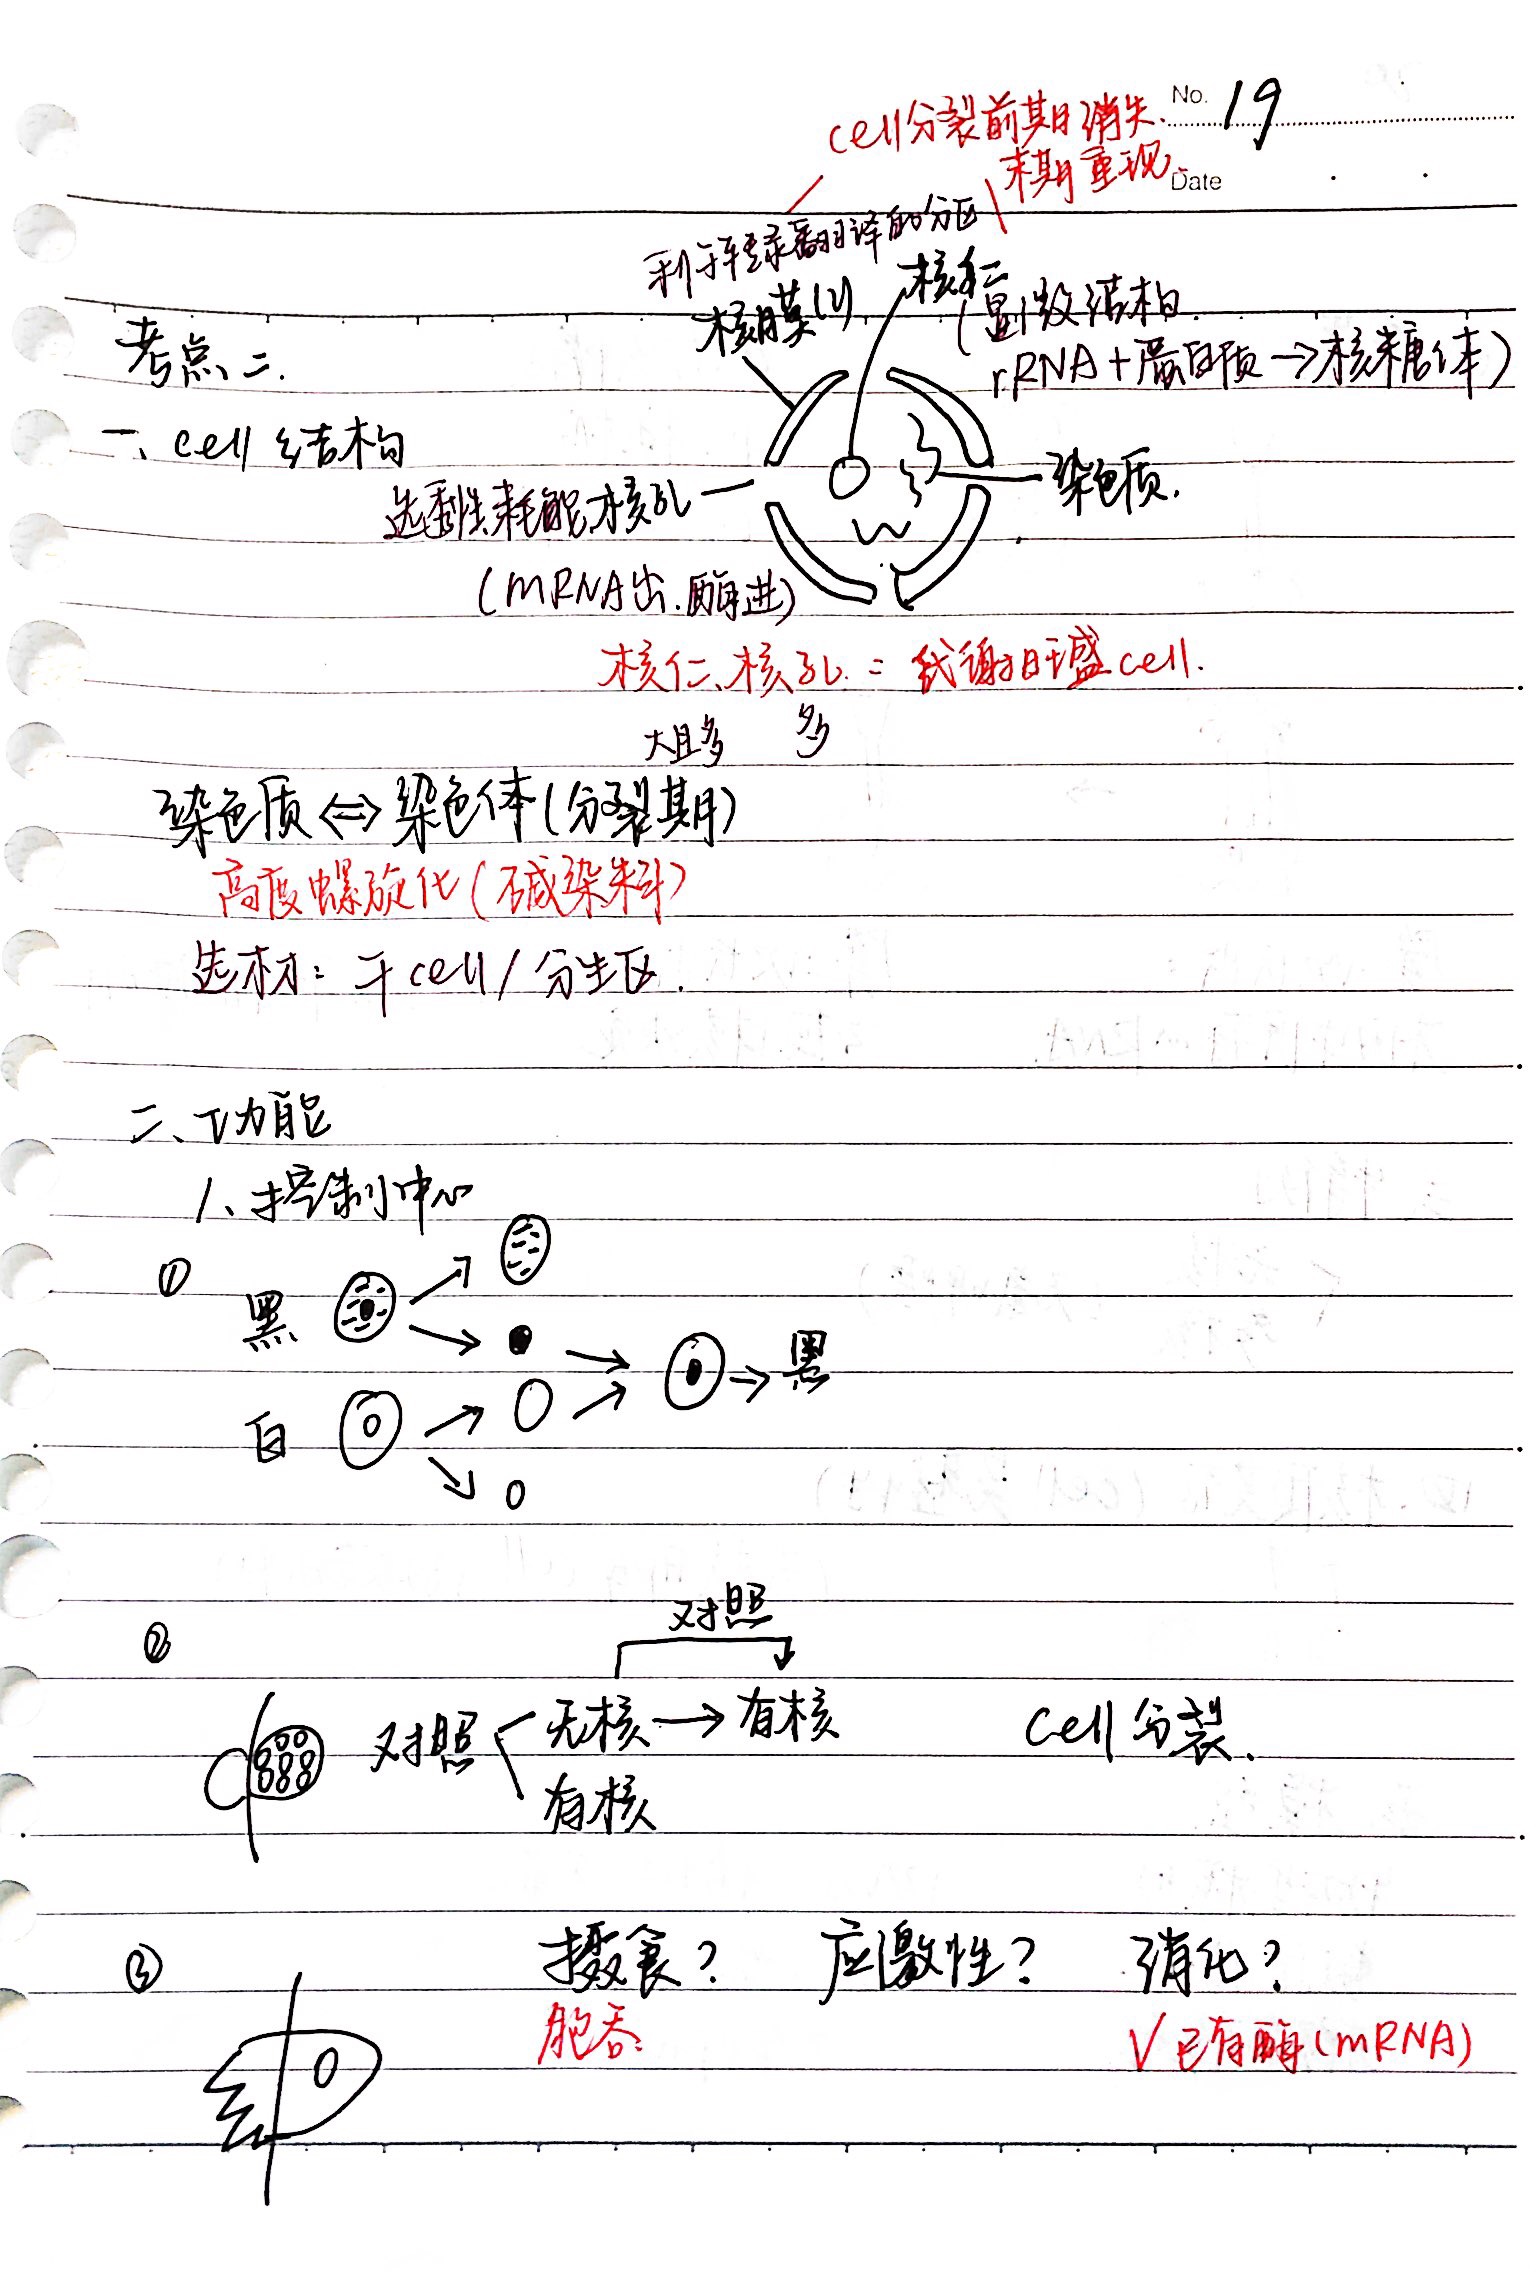 No. 19
cell分裂前期消失.
末期重现.
Date
利于转录翻译的分区
核膜(2)
核仁
(显微结构
rRNA+蛋白质→核糖体)
考点二.
一、cell结构
染色质.
选择性,耗能,核孔
(mRNA出.酶进)
核仁、核孔 = 代谢旺盛cell.
大且多 多
染色质⇔染色体(分裂期)
高度螺旋化(碱染料)
选材: 干cell/分生区.
二、功能
1、控制中心
①
黑
→黑
白
②
对照
对照 无核→有核 cell分裂.
有核
③ 摄食? 应激性? 消化?
胞吞. √已有酶(mRNA)